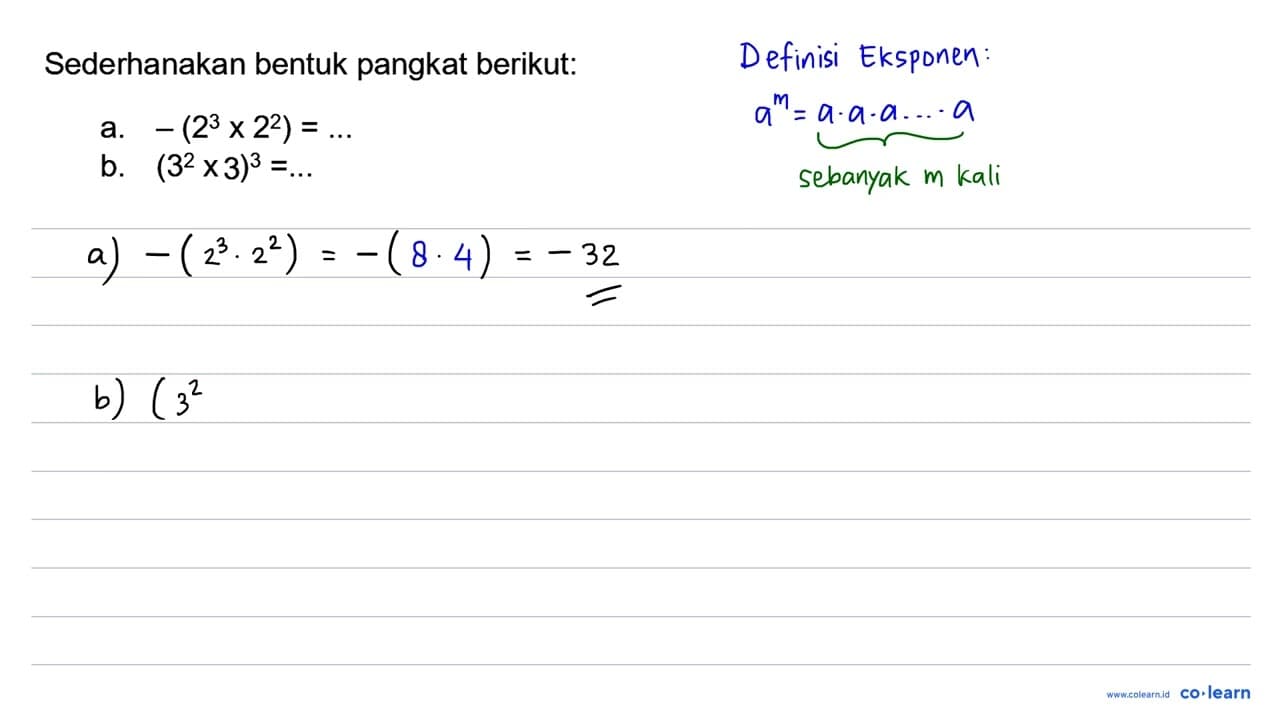 Sederhanakan bentuk pangkat berikut:
a. – (2³ x 2²) = ...
b. (3² x 3)³ =...
Definisi Eksponen:
aᵐ = a·a·a·...·a
sebanyak m kali
a) – (2³ · 2²) = – (8 · 4) = – 32
b) (3²
www.colearn.id co·learn